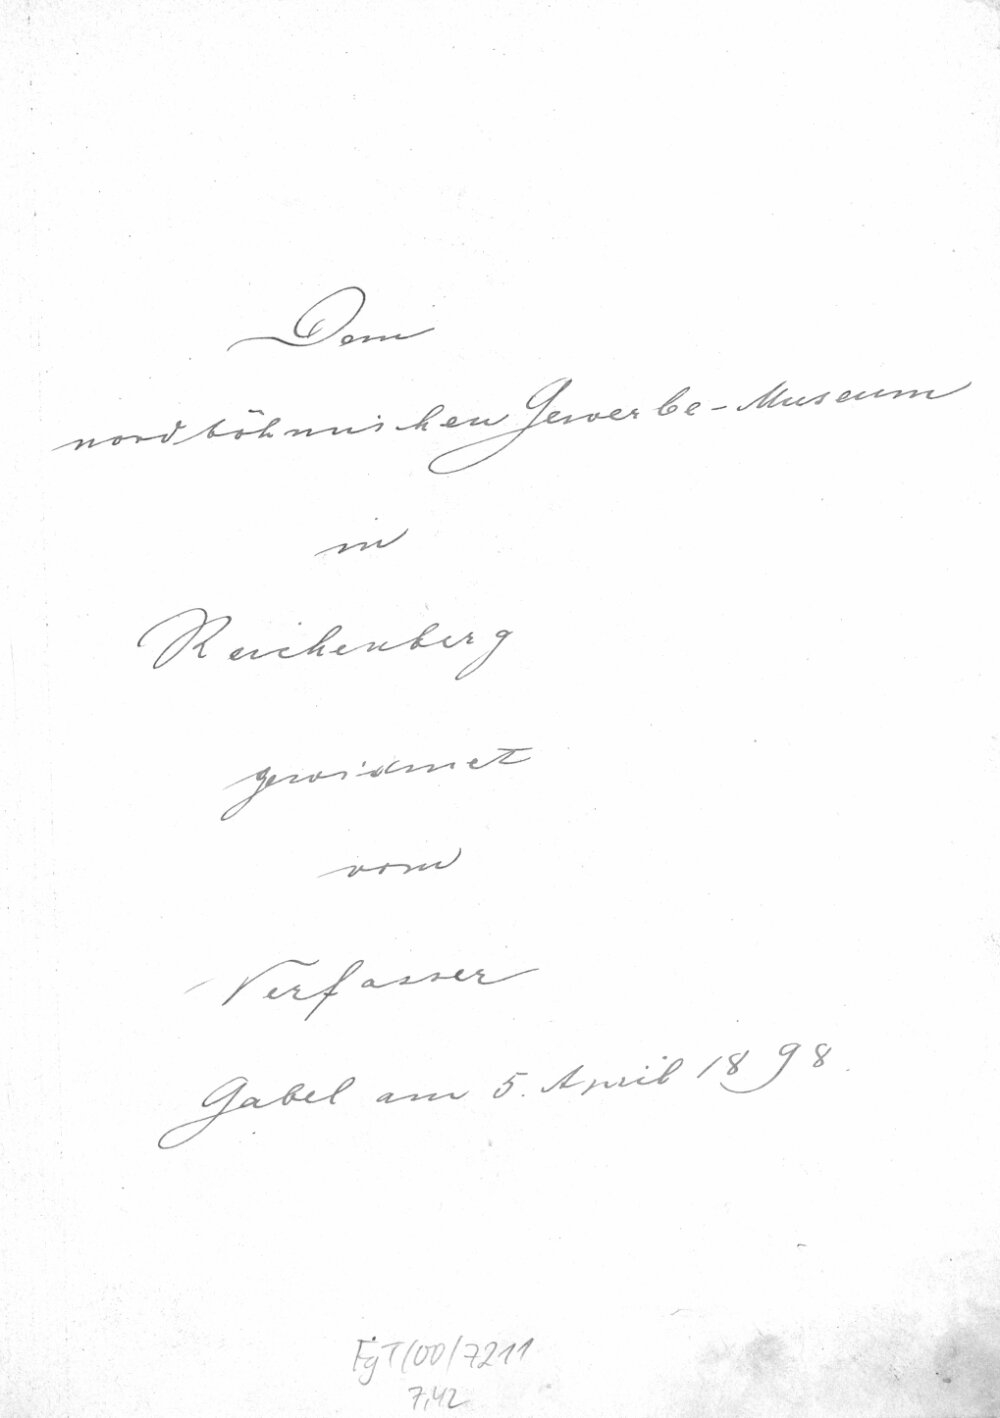 Dem
nordböhmischen Gewerbe-Museum
in
Reichenberg
gewidmet
vom
Verfasser
Gabel am 5. April 1898.
FgT/00/7211
7,42